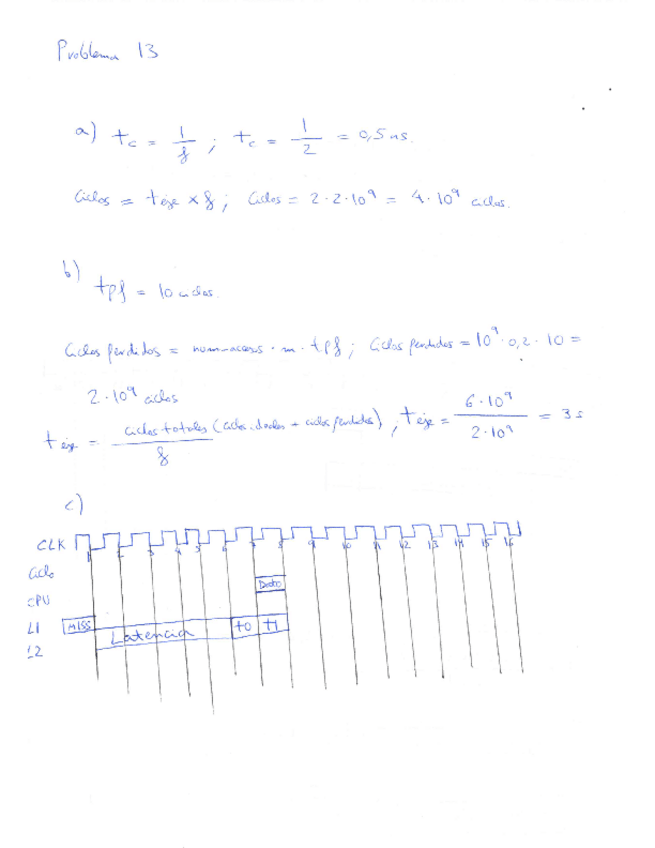 Problema 13
a) tc = 1/f ; tc = 1/2 = 0,5 ns.
Ciclos = teje x f ; Ciclos = 2·2·10^9 = 4·10^9 ciclos.
b)
tpf = 10 ciclos.
Ciclos perdidos = num-accesos · m · tpf ; Ciclos perdidos = 10^9 · 0,2 · 10 =
2·10^9 ciclos
teje = ciclos totales (ciclos ideales + ciclos perdidos) / f , teje = 6·10^9 / 2·10^9 = 3 s
c)
CLK 1 2 3 4 5 6 7 8 9 10 11 12 13 14 15 16
Ciclo
CPU Dato
L1 MISS t0 t1
L2 Latencia